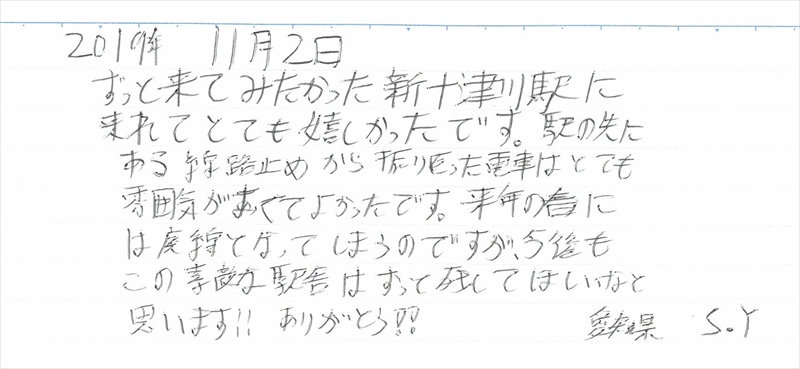 2019年 11月2日
ずっと来てみたかった新十津川駅に
来れてとても嬉しかったです。駅の先に
ある線路止めから振り返った電車はとても
雰囲気があってよかったです。来年の春に
は廃線となってしまうのですが、今後も
この素敵な駅舎はずっと残してほしいなと
思います!! ありがとう!!
愛知県 S.Y